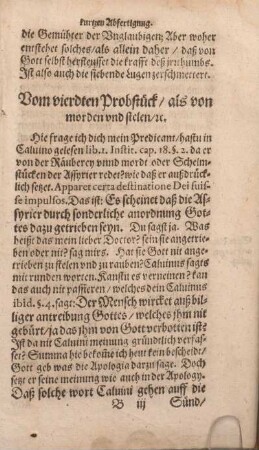 kurtzen Abfertigung.
die Gemühter der Vnglaubigen; Aber woher
entstehet solches / als allein daher / daß von
Gott selbst herfleusset die krafft deß irrthumbs.
Ist also auch die siebende Lügen zerschmettert.
Vom vierdten Probstück / als von
morden vnd stelen / ꝛc.
Hie frage ich dich mein Predicant / hastu in
Caluino gelesen lib. 1. Instit. cap. 18. §. 2. da er
von der Räuberey vnnd mordt oder Schelm-
stücken der Assyrier redet? wie daß er außdrück-
lich setzet. Apparet certa destinatione Dei fuis-
se impulsos. Das ist: Es scheinet daß die As-
syrier durch sonderliche anordnung Got-
tes dazu getrieben seyn. Du sagst ja. Was
heisst das mein lieber Doctor? sein sie angetrie-
ben oder nit? sag mirs. Hat sie Gott nit ange-
trieben zu stelen vnd zu rauben? Caluinus sagts
mit runden worten. Kanstu es verneinen? kan
das auch nit passieren / welches dein Caluinus
ibid. §. 4. sagt: Der Mensch wircket auß bil-
liger antreibung Gottes / welches jhm nit
gebürt / ja das jhm von Gott verbotten ist?
Ist da nit Caluini meinung gründtlich verfas-
set? Summa hie bekome ich kein bescheide /
Gott geb was die Apologia darzu sage. Doch
setzt er seine meinung wie auch in der Apology.
Daß solche wort Caluini gehen auff die
B iij Sünd /